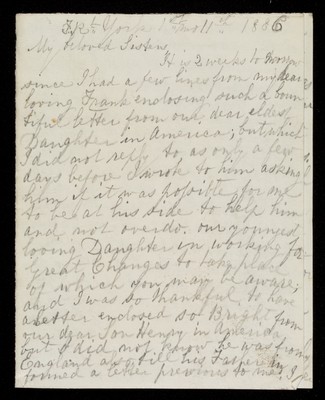 11th 1886
My Beloved Sisters,
It is 2 weeks to
since I had a few lines from my dear
loving Frank enclosing such a boun
tiful letter from our dear eldest
Daughter in America; but which
I did not reply to, as only a few
days before I wrote to him asking
him if it was possible for me
to be at his side to help him
and not overdo our youngest
loving Daughter in working for
Great Changes to take place
of which you may be aware;
and I was so thankful to have
a letter enclosed so Bright from
our dear Son Henry in America
but I did not know he was from
England as till his Father in
formed a letter previous to me, I